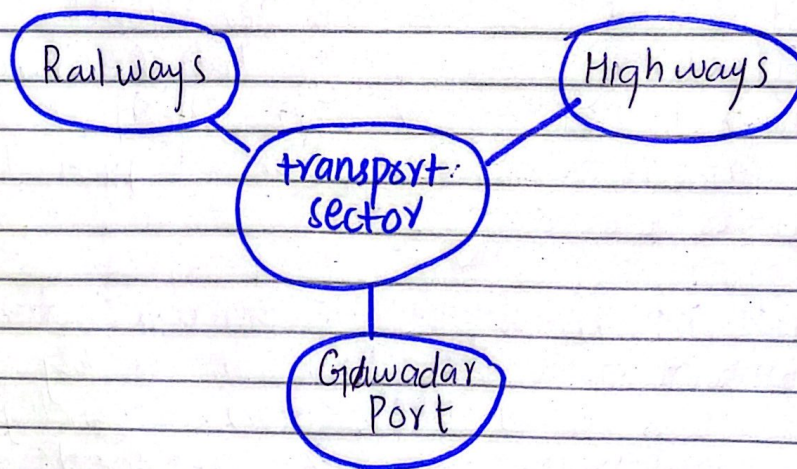 Railways
Highways
transport
sector
Gawadar
Port